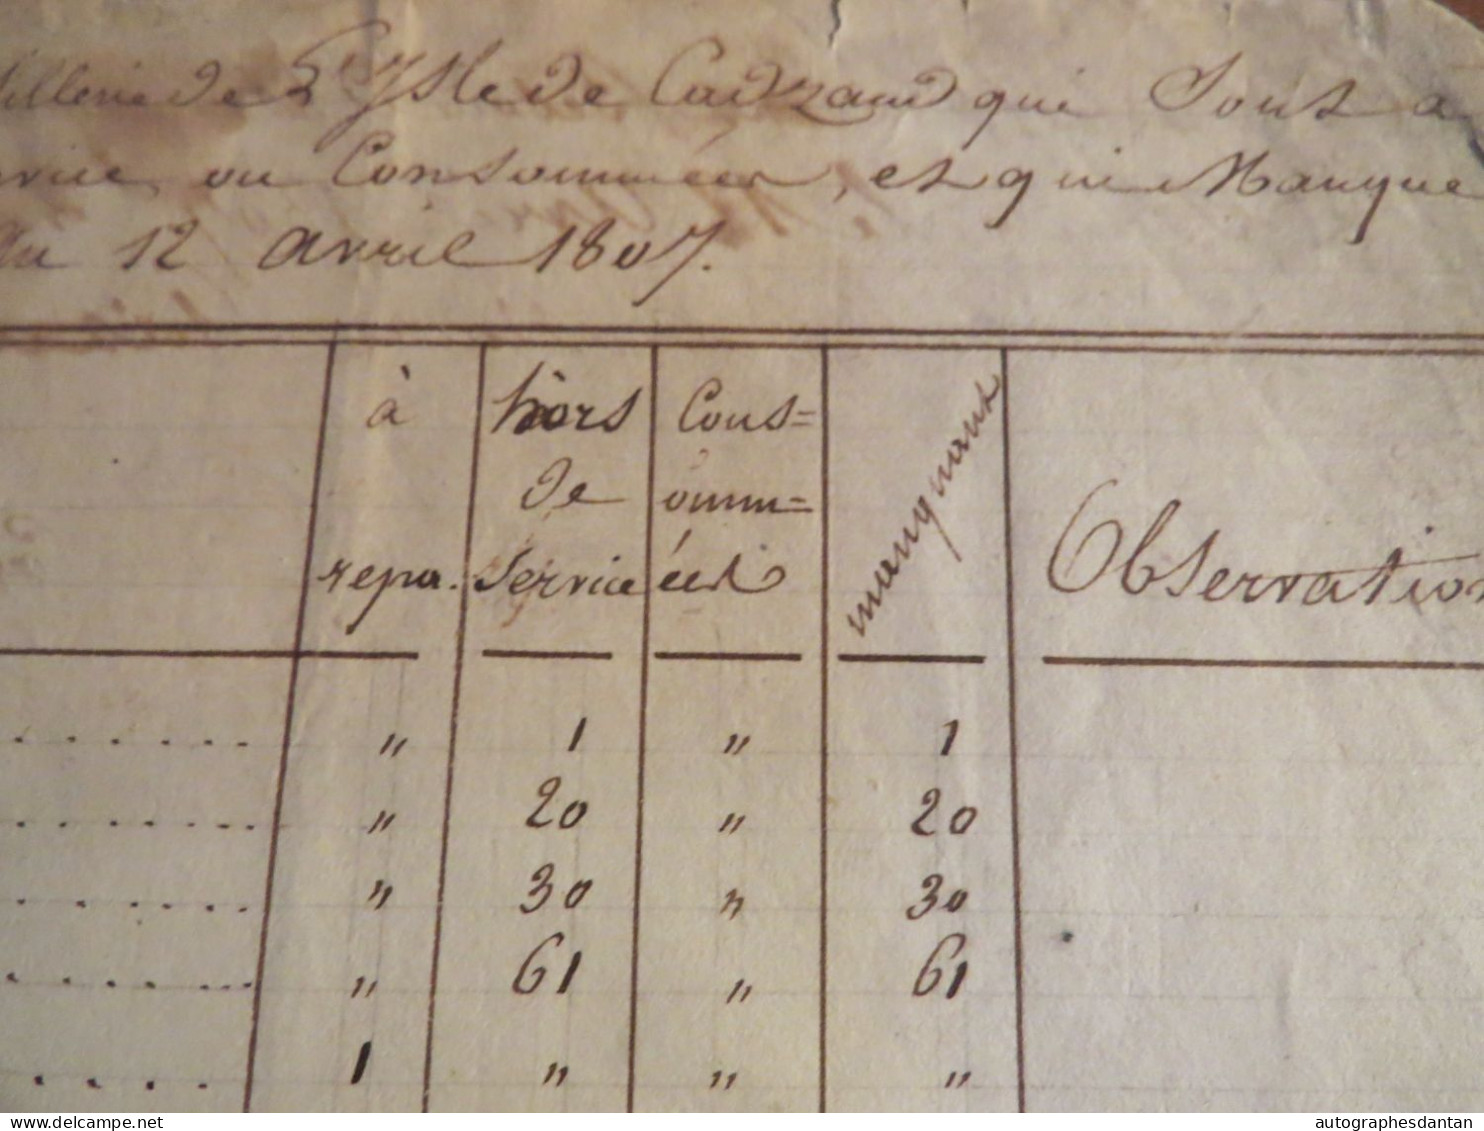 illerie de L'Ysle de Cadzand qui Sont a
rvice ou Consommées, et qui Manque
du 12 avril 1807.
à hors Cons=
de omm=
repa. Service ées manquant Observation
" 1 " 1
" 20 " 20
" 30 " 30
" 61 " 61
1 " " "
autographesdantan